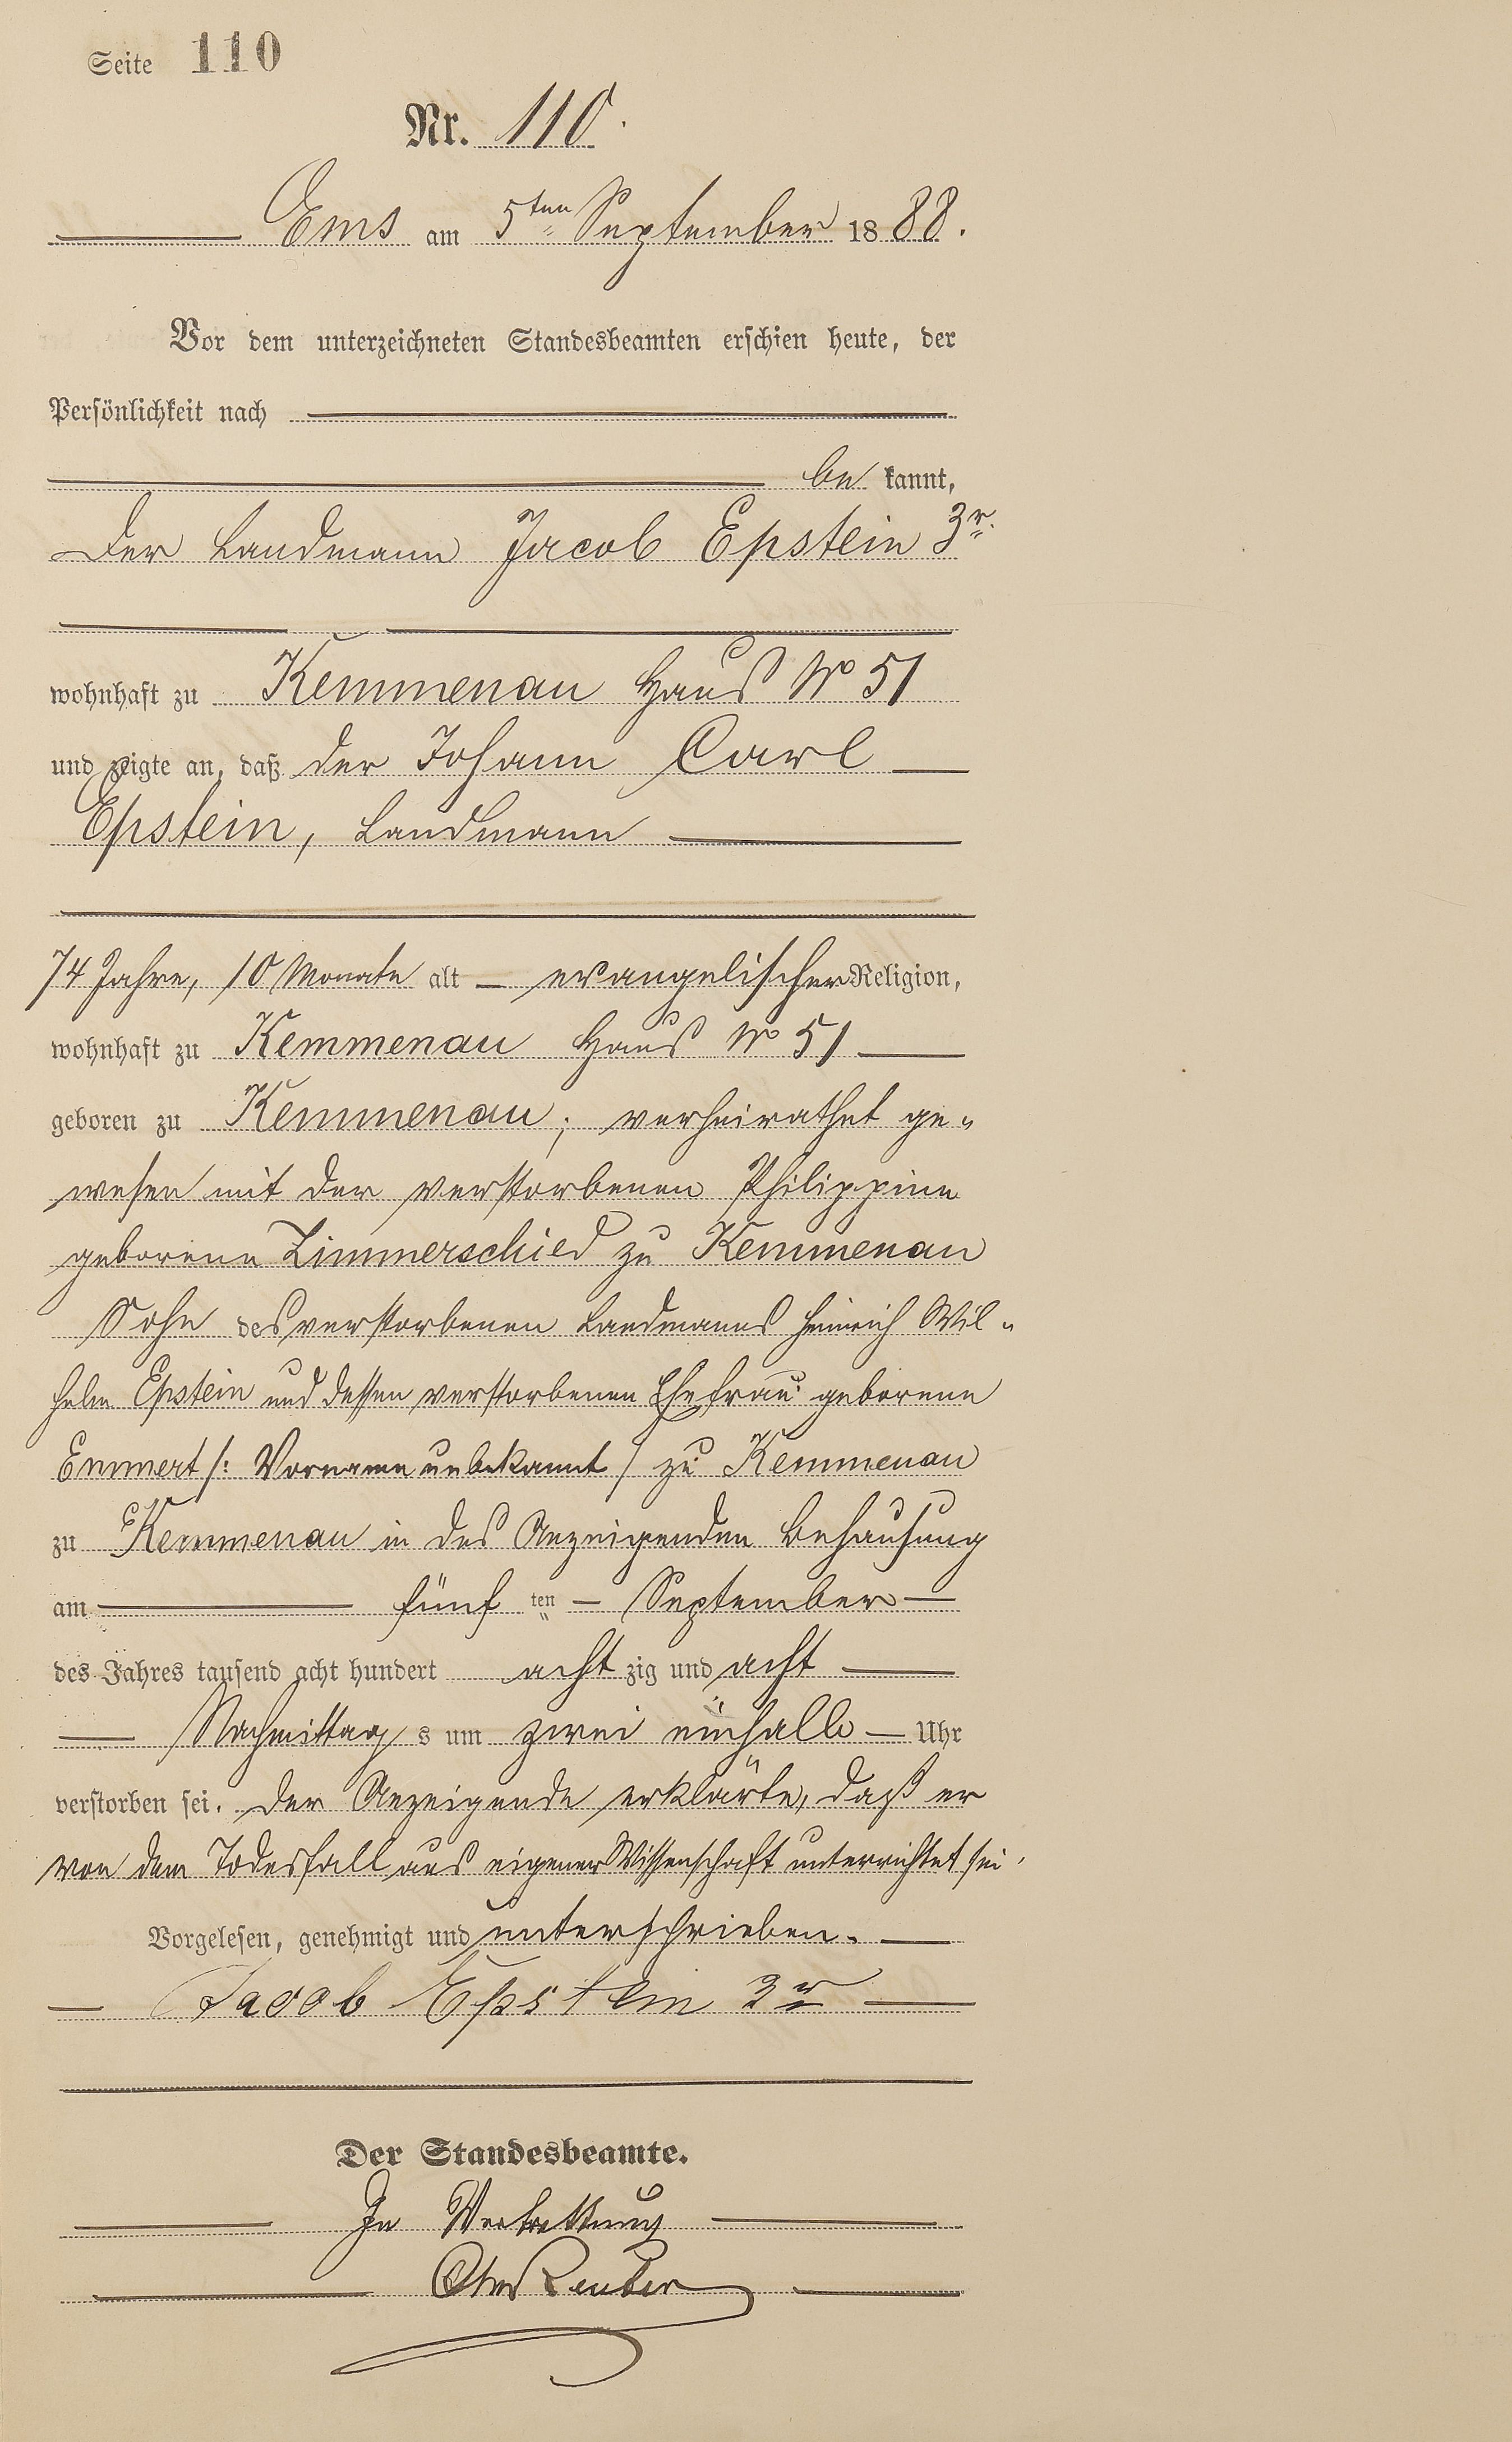 Seite 110
Nr. 110.
Ems am 5ten September 1888.
Vor dem unterzeichneten Standesbeamten erschien heute, der
Persönlichkeit nach
be kannt,
der Landmann Jacob Epstein 3r.
wohnhaft zu Kemmenau Haus No 51
und zeigte an, daß der Johann Carl
Epstein, Landmann
74 Jahre, 10 Monate alt evangelischer Religion,
wohnhaft zu Kemmenau Haus No 51
geboren zu Kemmenau; verheirathet ge-
wesen mit der verstorbenen Philippine
geborene Zimmerschied zu Kemmenau
Sohn des verstorbenen Landmanns Heinrich Wil-
helm Epstein und dessen verstorbenen Ehefrau geborene
Emmert /: Vorname unbekannt / zu Kemmenau
zu Kemmenau in des Anzeigenden Behausung
am fünf ten September
des Jahres tausend acht hundert acht zig und acht
Nachmittag s um zwei einhalb Uhr
verstorben sei. Der Anzeigende erklärte, daß er
von dem Todesfall aus eigener Wissenschaft unterrichtet sei.
Vorgelesen, genehmigt und unterschrieben.
Jacob Epstein 3r
Der Standesbeamte.
In Vertrettung